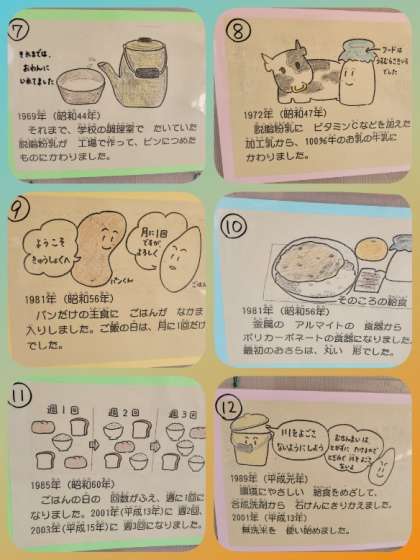 ⑦
それまでは、
おわんに
いれてました
1969年（昭和44年）
それまで、学校の調理室で たいていた
脱脂粉乳が 工場で作って、ビンにつめた
ものにかわりました。
⑧
フードは
1972年（昭和47年）
脱脂粉乳に ビタミンCなどを加えた
加工乳から、100％牛のお乳の牛乳に
かわりました。
⑨
ようこそ
きゅうしょくへ
パンくん
月に1回
ですが、
よろしく
ごはん
1981年（昭和56年）
パンだけの主食に ごはんが なかま
入りしました。ご飯の日は、月に1回だけ
でした。
⑩
そのころの給食
1981年（昭和56年）
金属の アルマイトの 食器から
ポリカーボネートの食器になりました。
最初のおさらは、丸い 形でした。
⑪
週1回
週2回
週3回
1985年（昭和60年）
ごはんの日の 回数がふえ、週に1回に
なりました。2001年(平成13年)に 週2回、
2003年(平成15年)に 週3回になりました。
⑫
川をよごさ
ないようにしよう
1989年（平成元年）
環境にやさしい 給食をめざして、
合成洗剤から 石けんにきりかえました。
2001年（平成13年）
無洗米を 使い始めました。